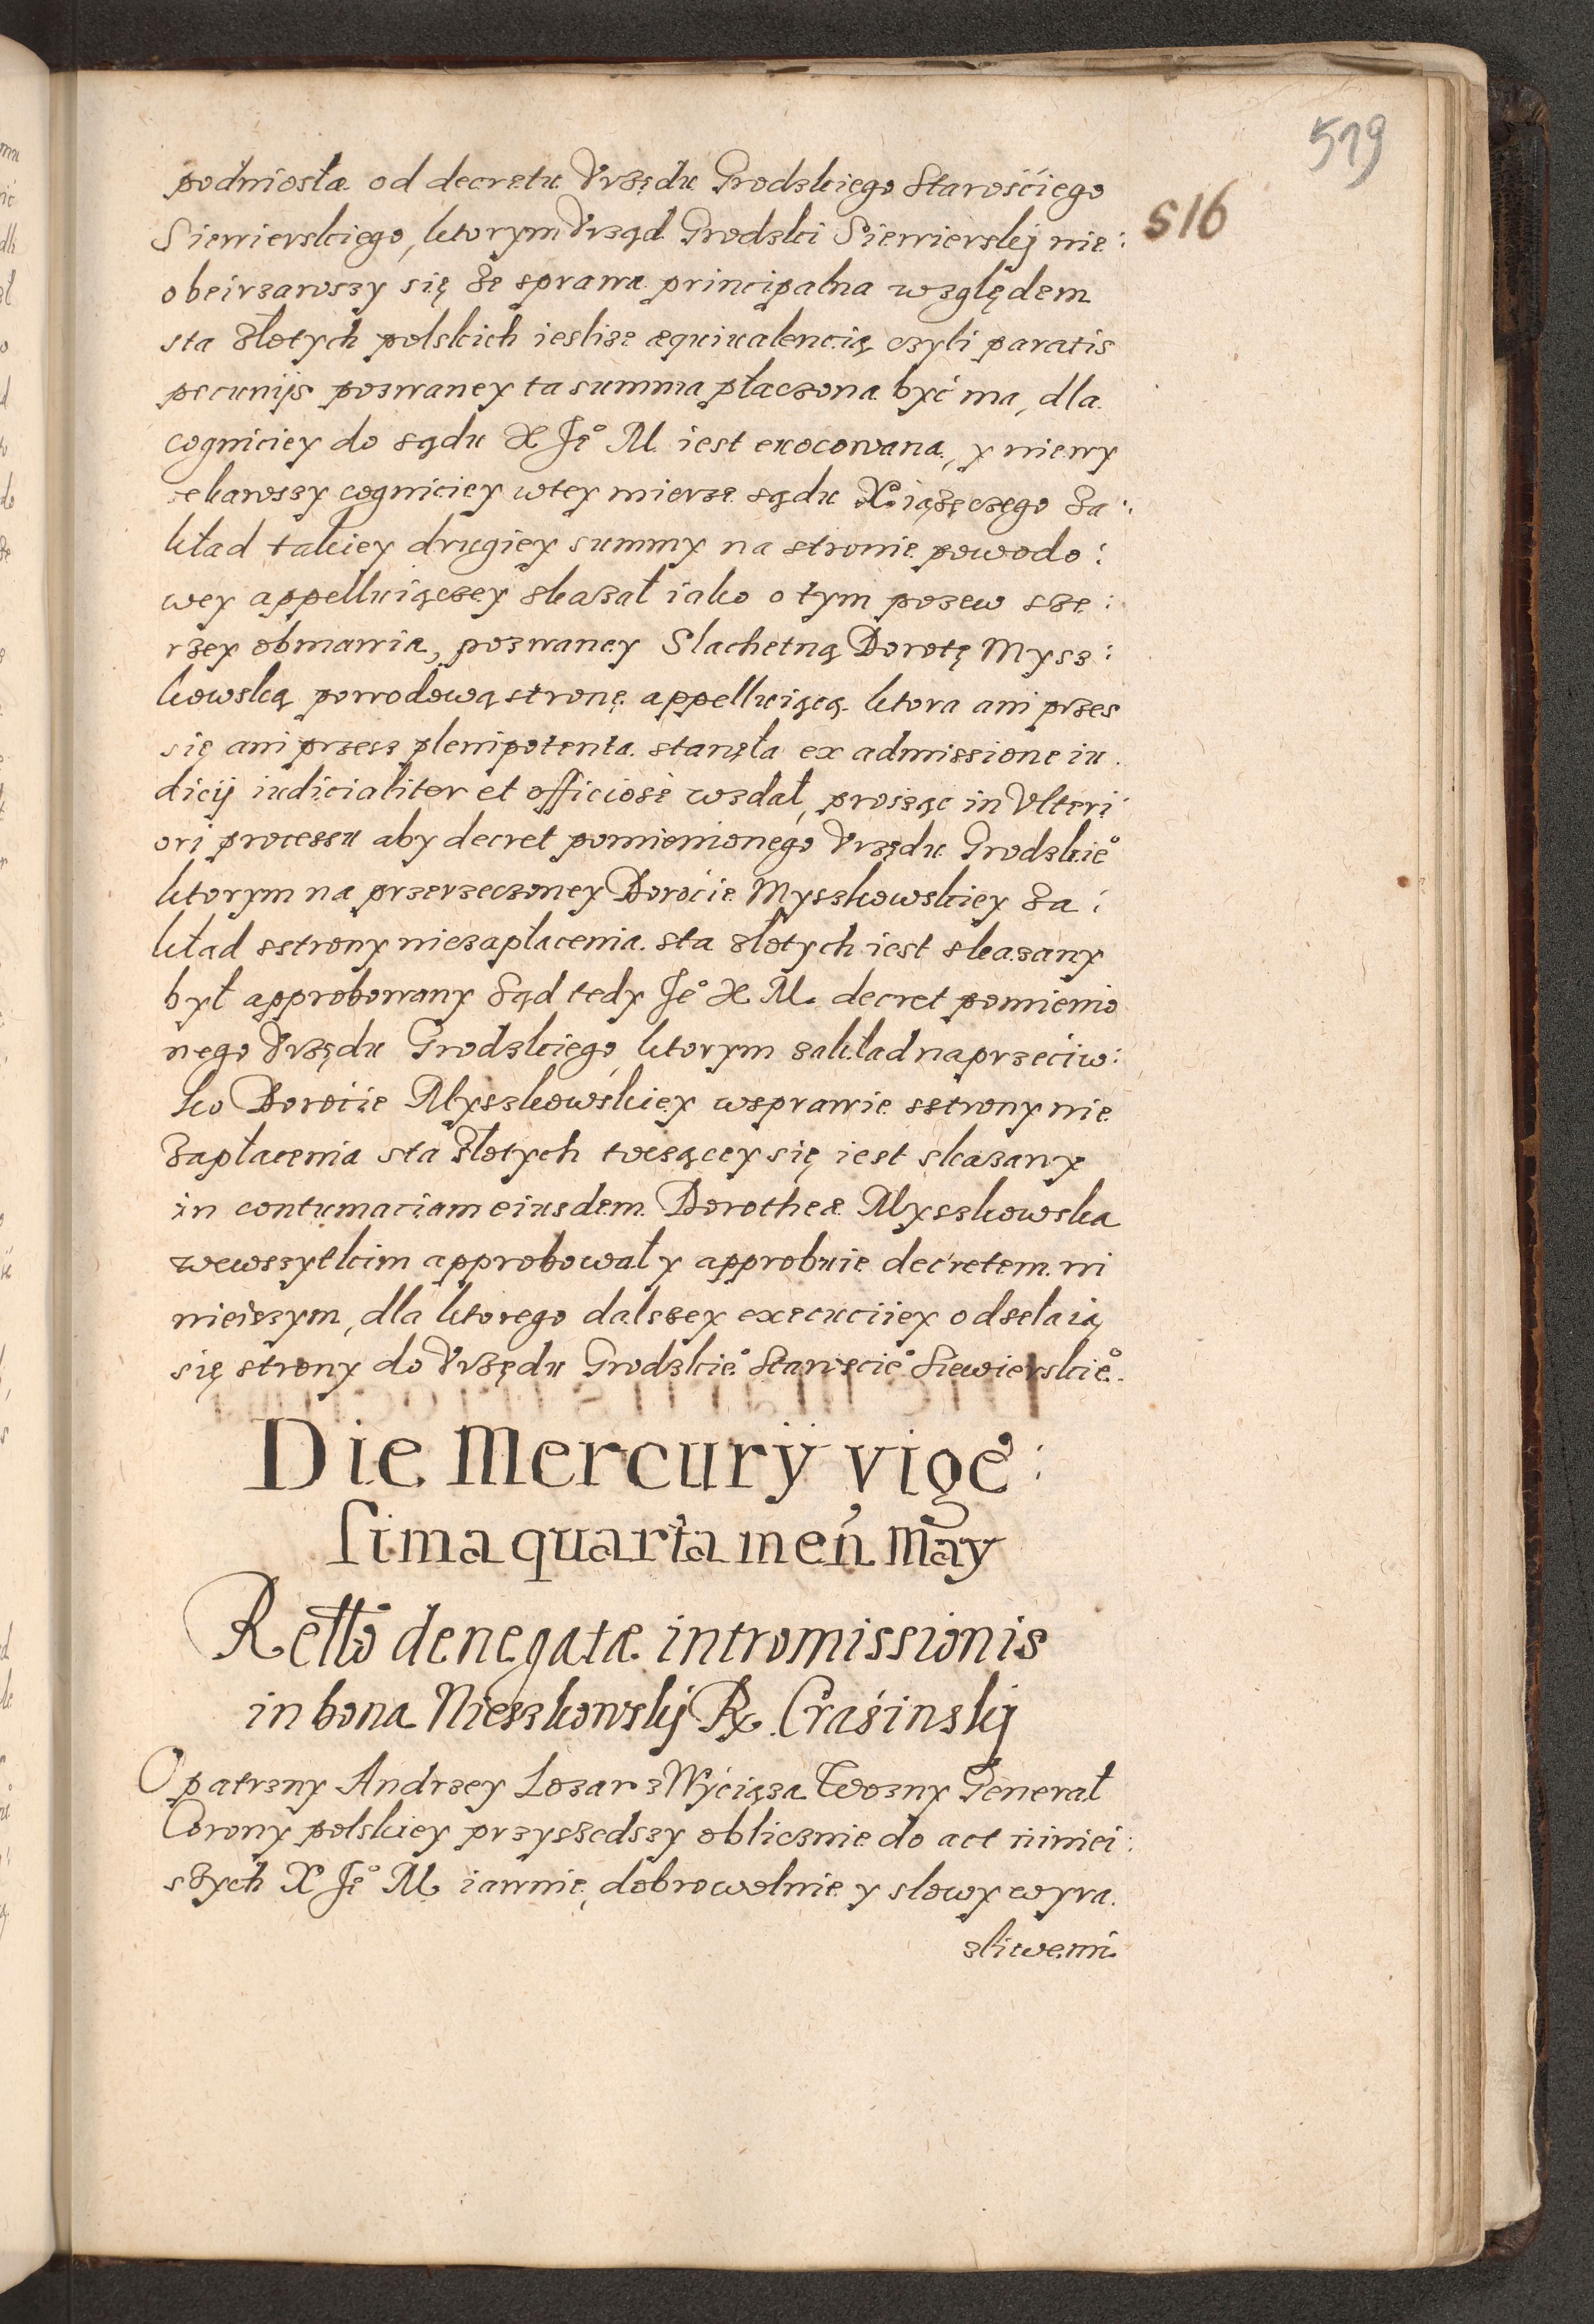 519
516
podniosła od decretu Vrzędu Grodzkiego Starościego
Siewierskiego, ktorym Vrząd Grodzki Siewierskij nie:
obeirzawszy się że sprawa principalna względem
sta złotych polskich iesliże æquiualencią czyli paratis
pecunijs pozwaney ta summa płaczona być ma, dla
cogniciey do sądu X Je° M. iest euocowana, y niewy
czekawszy cogniciey wtey mierze sądu Xiążęczego Za:
kład takiey drugiey summy na stronie powodo:
wey appelluiączey skazał iako o tym pozew sze:
rzey obmawia, pozwaney Slachetną Dorotę Mysz:
kowską powodową stronę appelluiącą ktora ani przes
się ani przesz plenipotenta stanęła ex admissione iu
dicij iudicialiter et officiosè wzdał, prosząc in Vlteri
ori processu aby decret pomienionego Vrzędu Grodzkie°
ktorym na przerzeczoney Dorocie Myszkowskiey Za:
kład sstrony niezapłacenia sta złotych iest skazany
był approbowany Sąd tedy Je° X M. decret pomienio
nego Vrzędu Grodzkiego, ktorym zakład naprzeciw:
ko Dorocie Myszkowskiey wsprawie sstrony nie
Zapłacenia sta złotych toczącey się iest skazany
in contumaciam eiusdem Dorotheæ Myszkowska
wewszytkim approbował y approbuie decretem ni
nieiszym, dla ktorego dalszey execuciiey odsełaią
się strony do Vrzędu Grodzkie° Staroscie° Siewierskie°.
Die Mercurÿ vige:
sima quarta men May
Rello denegatæ intromissionis
in bona Nieszkowskij Rx Crasinskij
Opatrzny Andrzey Lozar z Wyciąza Wozny Generał
Corony polskiey przyszedszy oblicznie do act niniei:
szych X Je° M iawnie, dobrowolnie y słowy wyra
zliwemi